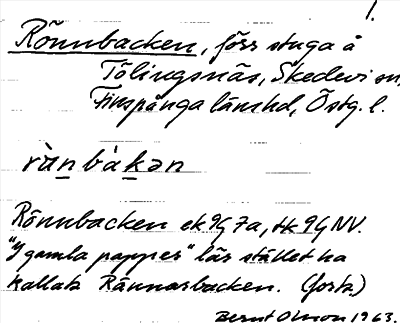 1.
Rönnbacken, förr stuga å
Tölingsnäs, Skedevi sn,
Finspånga länshd, Östg. l.
rànbàkən
Rönnbacken ek 9G 7a, tk 9G NV.
"I gamla papper" lär stället ha
kallats Rännarbacken. (forts)
Bernt Olsson 1963.